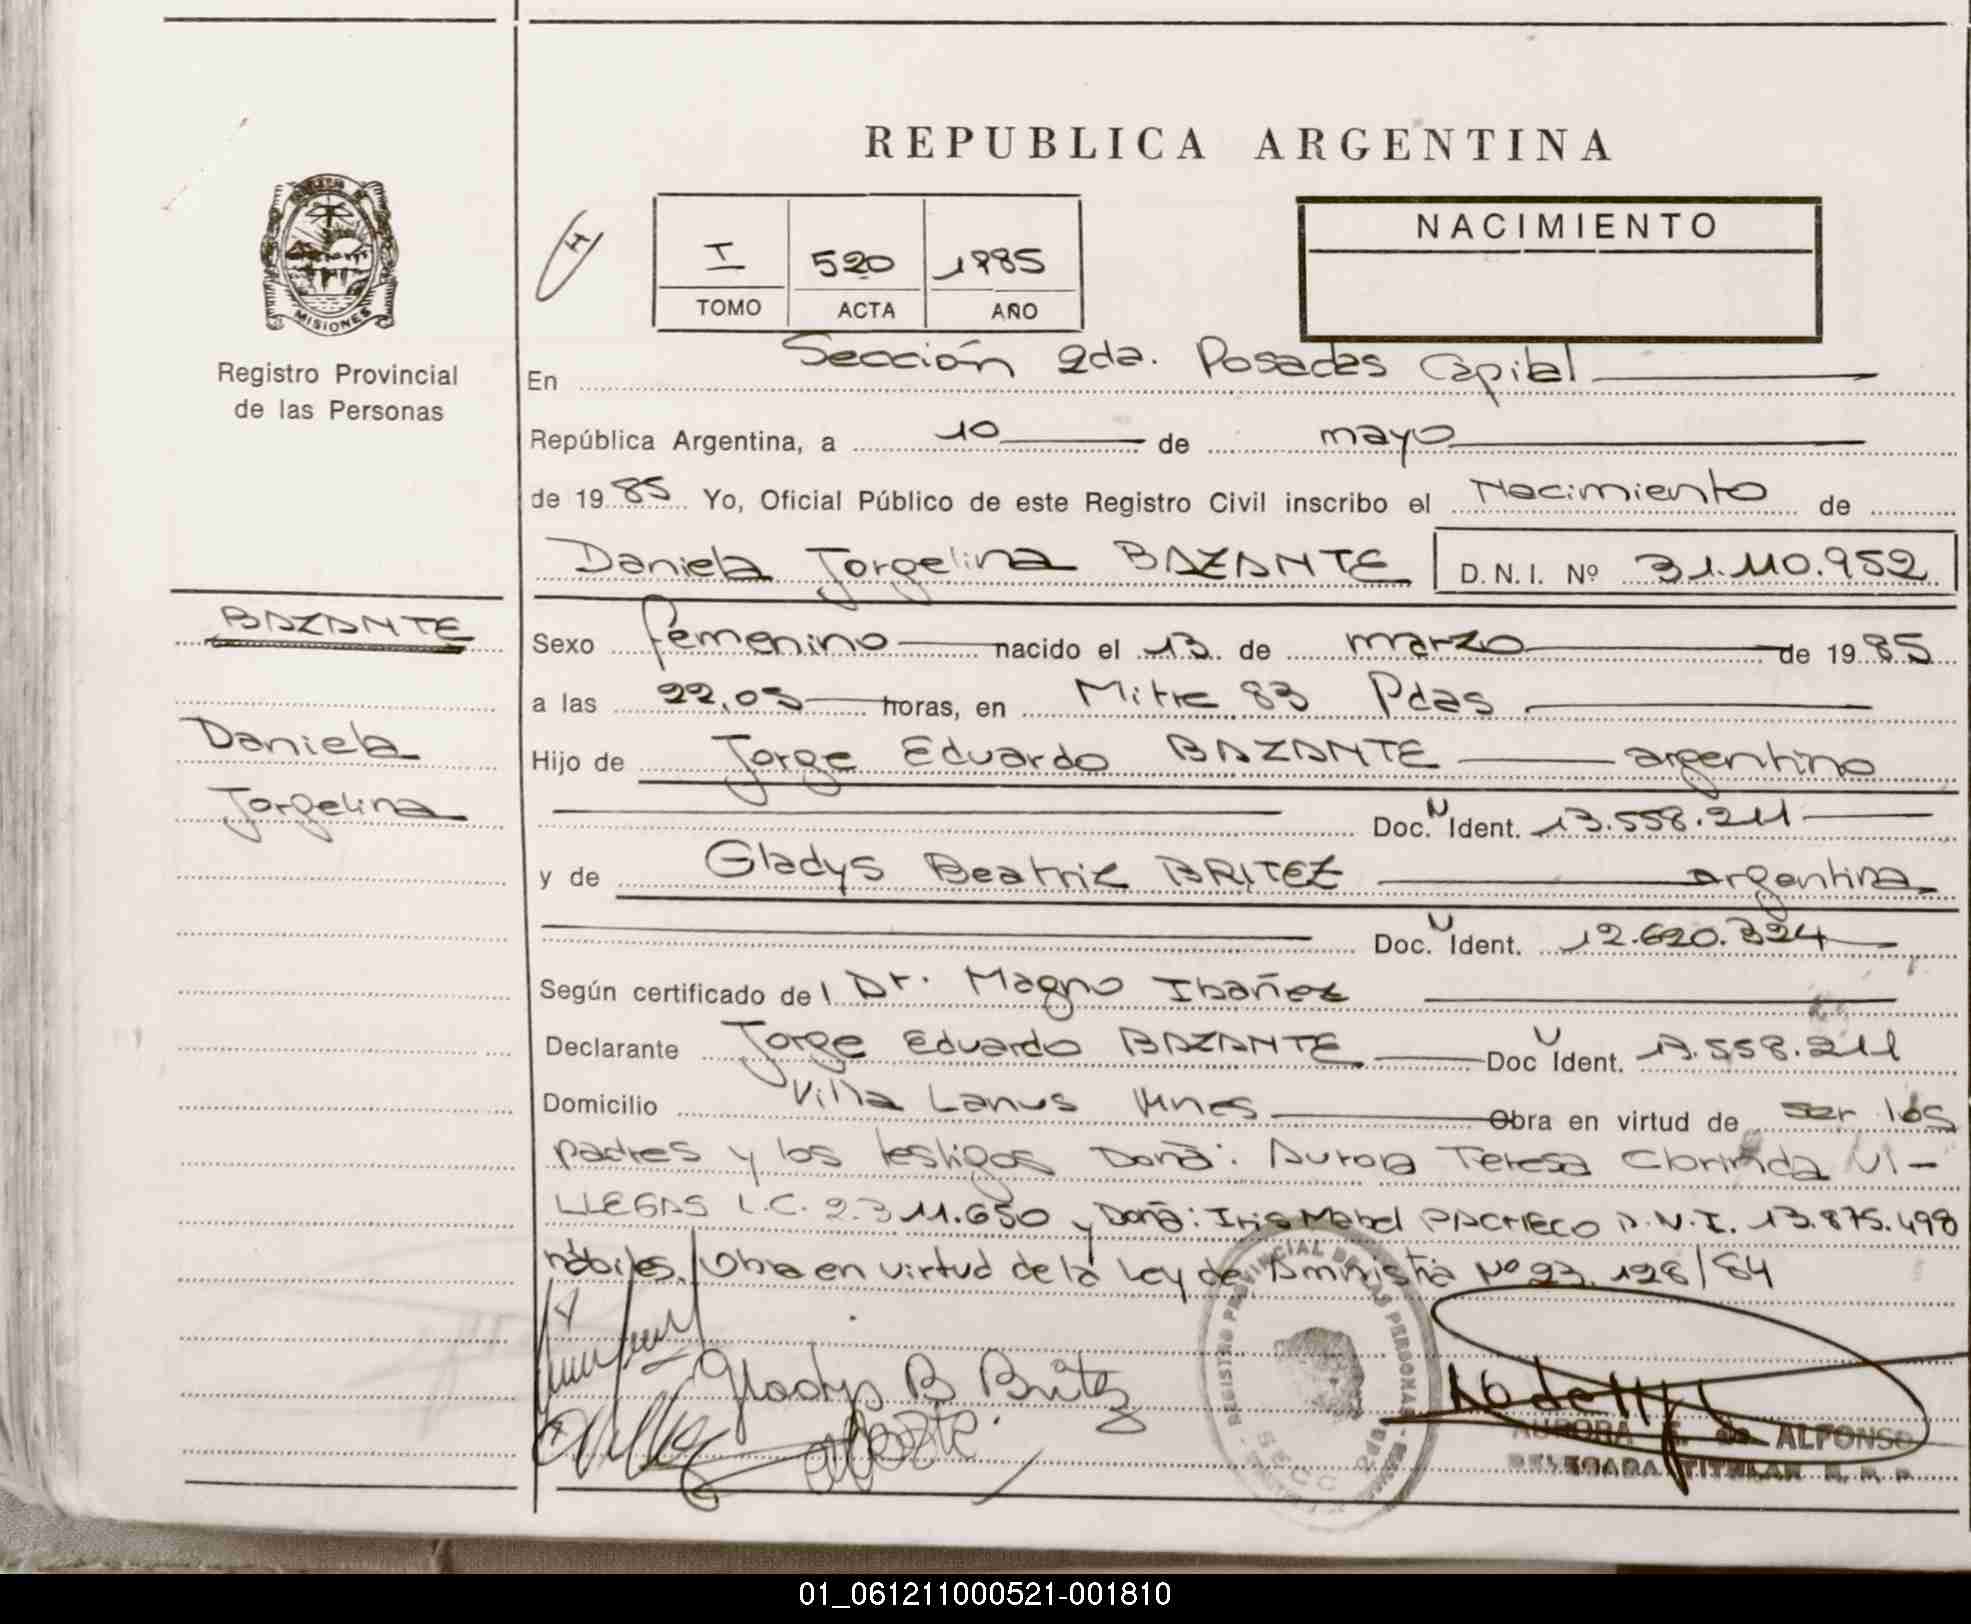 REPUBLICA ARGENTINA
MISIONES
Registro Provincial
de las Personas
H
I 520 1985
TOMO ACTA AÑO
NACIMIENTO
En Sección 2da. Posadas Capital
República Argentina, a 10 de mayo
de 1985 Yo, Oficial Público de este Registro Civil inscribo el Nacimiento de
Daniela Jorgelina BAZANTE D.N.I. Nº 31.110.952
BAZANTE
Daniela
Jorgelina
Sexo femenino nacido el 13 de marzo de 1985
a las 22,05 horas, en Mitre 83 Pdas
Hijo de Jorge Eduardo BAZANTE argentino
Doc. N Ident. 13.558.211
y de Gladys Beatriz BRITEZ argentina
Doc. Ident. 12.620.324
Según certificado del Dr. Magno Ibañez
Declarante Jorge Eduardo BAZANTE Doc Ident. 13.558.211
Domicilio Villa Lanus Obra en virtud de ser los
padres y los testigos Doña: Aurora Teresa Clorinda VI-
LLEGAS L.C. 2.311.650 y Doña: Iris Mabel PACHECO D.N.I. 13.875.498
hábiles. Obra en virtud de la Ley de Amnistia Nº 23.128/84
Gladys B Britez
REGISTRO PROVINCIAL DE LAS PERSONAS
SECC 2da.
AURORA de ALFONSO
DELEGADA TITULAR R. P. P.
01_061211000521-001810